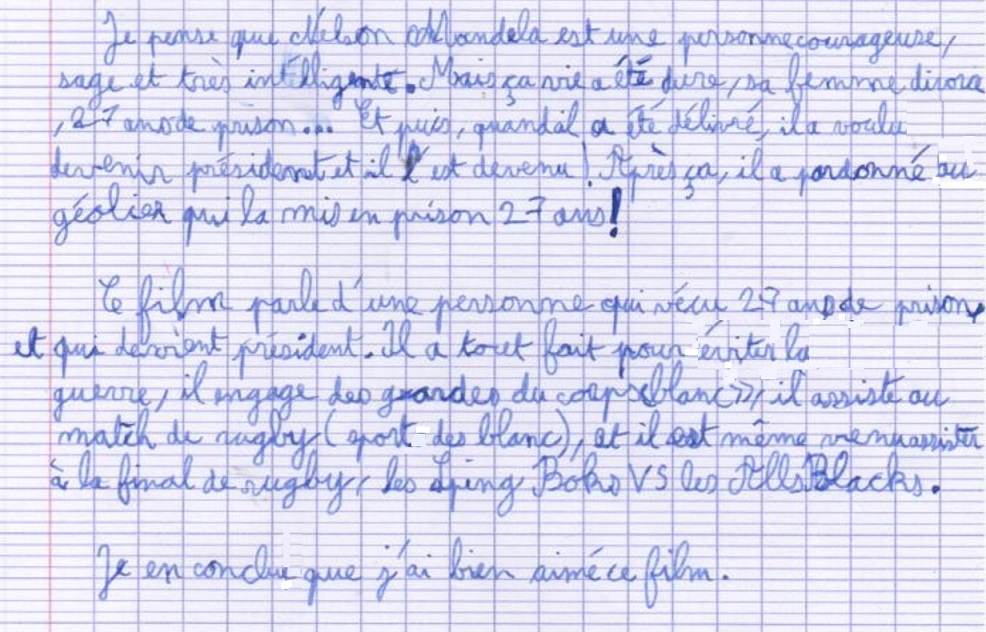 Je pense que Nelson Mandela est une personne courageuse,
sage et très intelligente. Mais ça vie a été dure, sa femme divorce
, 27 ans de prison... Et puis, quand il a été délivré, il a voulu
devenir président et il l'est devenu ! Après ça, il a pardonné au
géolier qui la mis en prison 27 ans !
Ce film parle d'une personne qui vécu 27 ans de prison,
et qui devient président. Il a tout fait pour éviter la
guerre, il engage des grandes du corps «blanc», il assiste au
match de rugby (sport des blanc), et il est même venu assister
à la final de rugby, les Sping Boks VS les Alls Blacks.
Je en conclu que j'ai bien aimé ce film.